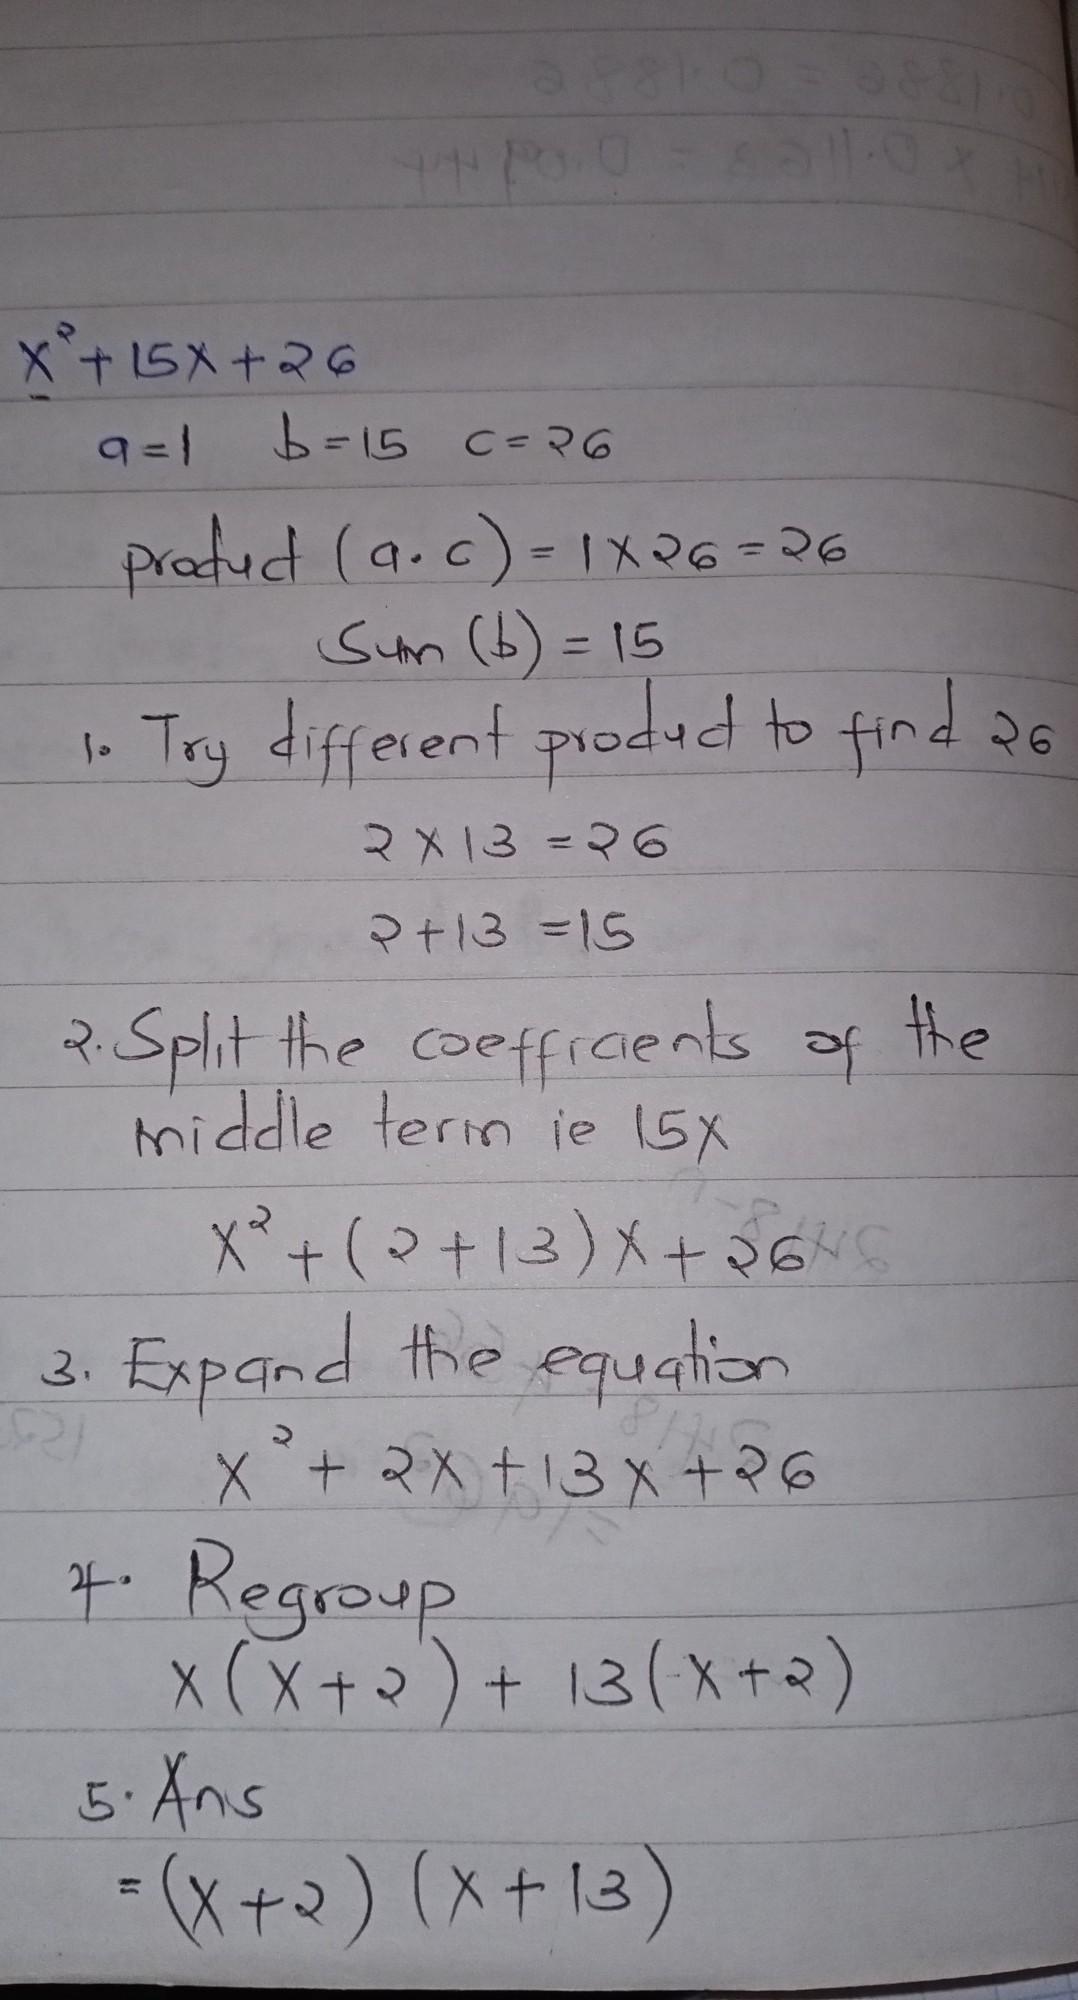 x² + 15x + 26
a = 1 b = 15 c = 26
product (a.c) = 1 x 26 = 26
Sum (b) = 15
1. Try different product to find 26
2 x 13 = 26
2 + 13 = 15
2. Split the coefficients of the
middle term ie 15x
x² + (2 + 13)x + 26
3. Expand the equation
x² + 2x + 13x + 26
4. Regroup
x(x + 2) + 13(x + 2)
5. Ans
= (x + 2) (x + 13)